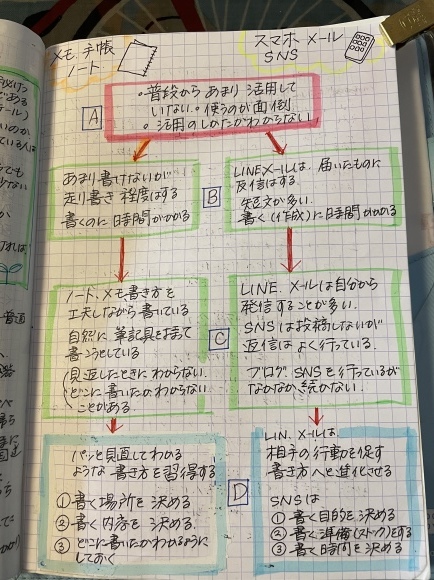 メモ、手帳
ノート
スマホ メール
SNS
A
・普段から あまり 活用して
いない。・使うのが 面倒
・活用のしかたがわからない
あまり書けないが
走り書き 程度はする
書くのに 時間がかかる
B
LINEメールは、届いたものに
返信はする。
短文が多い。
書く(作成)に時間がかかる
ノート、メモ書き方を
工夫しながら書いている
自然に 筆記具をもって
書こうとしている
(見返したときにわからない
どこに書いたかわからない
ことがある
C
LINE、メールは自分から
発信することが多い。
SNSは投稿しないが
返信は よく行っている。
ブログ、SNSを行っているが
なかなか続かない。
パッと見直してわかる
ような 書き方を習得する
①書く場所を 決める
②書く内容を 決める
③どこに書いたかわかるように
しておく
D
LIN、メールは、
相手の行動を促す
書き方へと進化させる
SNSは
①書く目的を決める
②書く準備(ストック)をする
③書く時間を決める